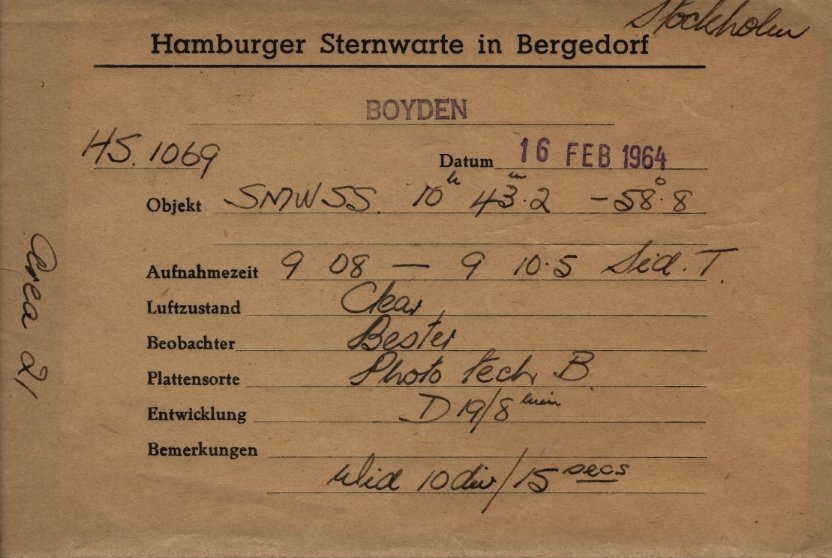 Stockholm
Hamburger Sternwarte in Bergedorf
BOYDEN
HS. 1069
Datum 16 FEB 1964
Objekt SMWSS. 10h 43m.2 -58°.8
Aufnahmezeit 9 08 — 9 10.5 Sid. T.
Luftzustand Clear
Beobachter Bester
Plattensorte Photo tech B.
Entwicklung D19/8 min
Bemerkungen
Wid 10div/15 secs
Area 21